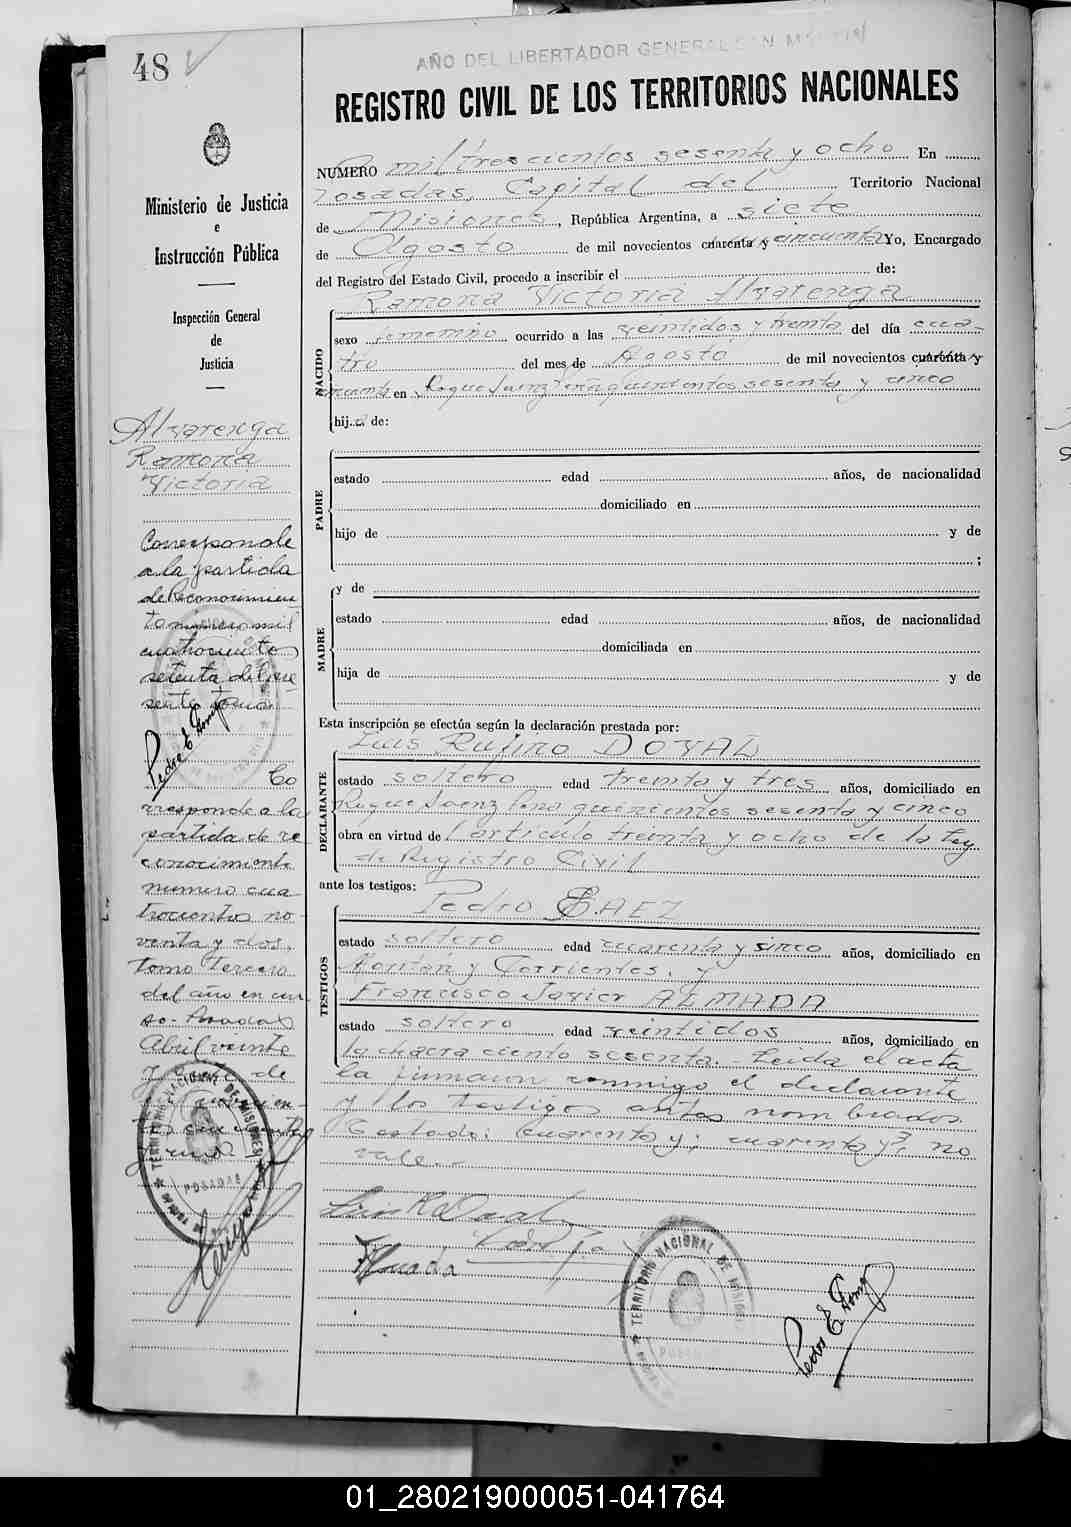 48
AÑO DEL LIBERTADOR GENERAL SAN MARTIN
REGISTRO CIVIL DE LOS TERRITORIOS NACIONALES
Ministerio de Justicia
e
Instrucción Pública
Inspección General
de
Justicia
Alvarenga
Ramona
Victoria
Corresponde
a la partida
de Reconocimien
to número mil
cuatrocientos
setenta del pre
sente tomo.
Pedro E.
Co
rresponde a la
partida de re
conocimiento
numero cua
trocientos no
venta y dos,
tomo tercero
del año en cur
so. Posadas
Abril veinte
y de
NUMERO mil trescientos sesenta y ocho En
Posadas, Capital del Territorio Nacional
de Misiones, República Argentina, a siete
de Agosto de mil novecientos cuarenta y cincuenta Yo, Encargado
del Registro del Estado Civil, procedo a inscribir el de:
Ramona Victoria Alvarenga
NACIDO
sexo femenino ocurrido a las veintidos y treinta del día cua-
tro del mes de Agosto de mil novecientos cuarenta y
cincuenta en Roque Saenz Peña quinientos sesenta y cinco
hija de:
PADRE
estado edad años, de nacionalidad
domiciliado en
hijo de y de
;
y de
MADRE
estado edad años, de nacionalidad
domiciliada en
hija de y de
Esta inscripción se efectúa según la declaración prestada por:
Luis Rufino DOVAL
DECLARANTE
estado soltero edad treinta y tres años, domiciliado en
Roque Saenz Peña quinientos sesenta y cinco
obra en virtud de l artículo treinta y ocho de la Ley
de Registro Civil
ante los testigos:
Pedro BAEZ
TESTIGOS
estado soltero edad cuarenta y cinco años, domiciliado en
Roritán y Corrientes, y
Francisco Javier ALMADA
estado soltero edad veintidos años, domiciliado en
la chacra ciento sesenta.- Leida el acta
la firmaron conmigo el declarante
y los testigos antes nombrados.
Testado: cuarenta y; cuarenta y; no
vale.-
Almada
TERRITORIO NACIONAL DE MISIONES
POSADAS
TERRITORIO NACIONAL DE MISIONES
POSADAS
Pedro E.
01_280219000051-041764